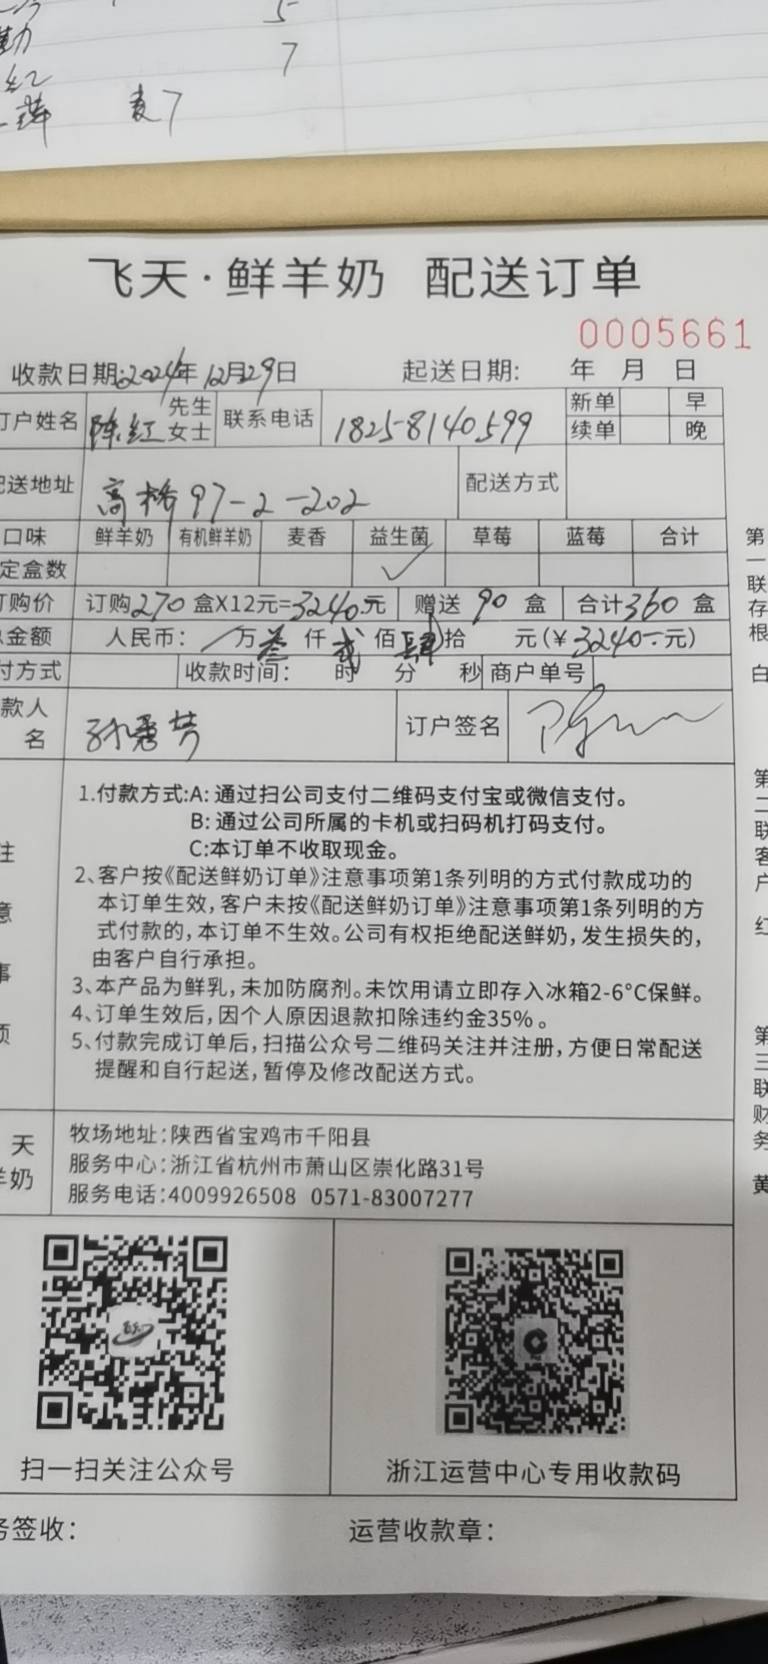 5
勤
7
红
萍 麦7
飞天·鲜羊奶 配送订单
0005661
收款日期:2024年12月29日 起送日期: 年 月 日
订户姓名 陈红 先生 女士 联系电话 18258140599 新单 早 续单 晚
配送地址 高桥97-2-202 配送方式
口味 鲜羊奶 有机鲜羊奶 麦香 益生菌 草莓 蓝莓 合计
定盒数 ✓
订购价 订购270盒X12元=3240元 赠送90盒 合计360盒
总金额 人民币: 万叁仟贰佰肆拾 元(¥3240-元)
付方式 收款时间: 时 分 秒 商户单号
款人名 孙秀芳 订户签名
注意事项
1.付款方式:A: 通过扫公司支付二维码支付宝或微信支付。
B: 通过公司所属的卡机或扫码机打码支付。
C:本订单不收取现金。
2、客户按《配送鲜奶订单》注意事项第1条列明的方式付款成功的
本订单生效,客户未按《配送鲜奶订单》注意事项第1条列明的方
式付款的,本订单不生效。公司有权拒绝配送鲜奶,发生损失的,
由客户自行承担。
3、本产品为鲜乳,未加防腐剂。未饮用请立即存入冰箱2-6°C保鲜。
4、订单生效后,因个人原因退款扣除违约金35%。
5、付款完成订单后,扫描公众号二维码关注并注册,方便日常配送
提醒和自行起送,暂停及修改配送方式。
天
羊奶
牧场地址:陕西省宝鸡市千阳县
服务中心:浙江省杭州市萧山区崇化路31号
服务电话:4009926508 0571-83007277
扫一扫关注公众号 浙江运营中心专用收款码
务签收: 运营收款章:
第一联存根 白
第二联客户 红
第三联财务 黄